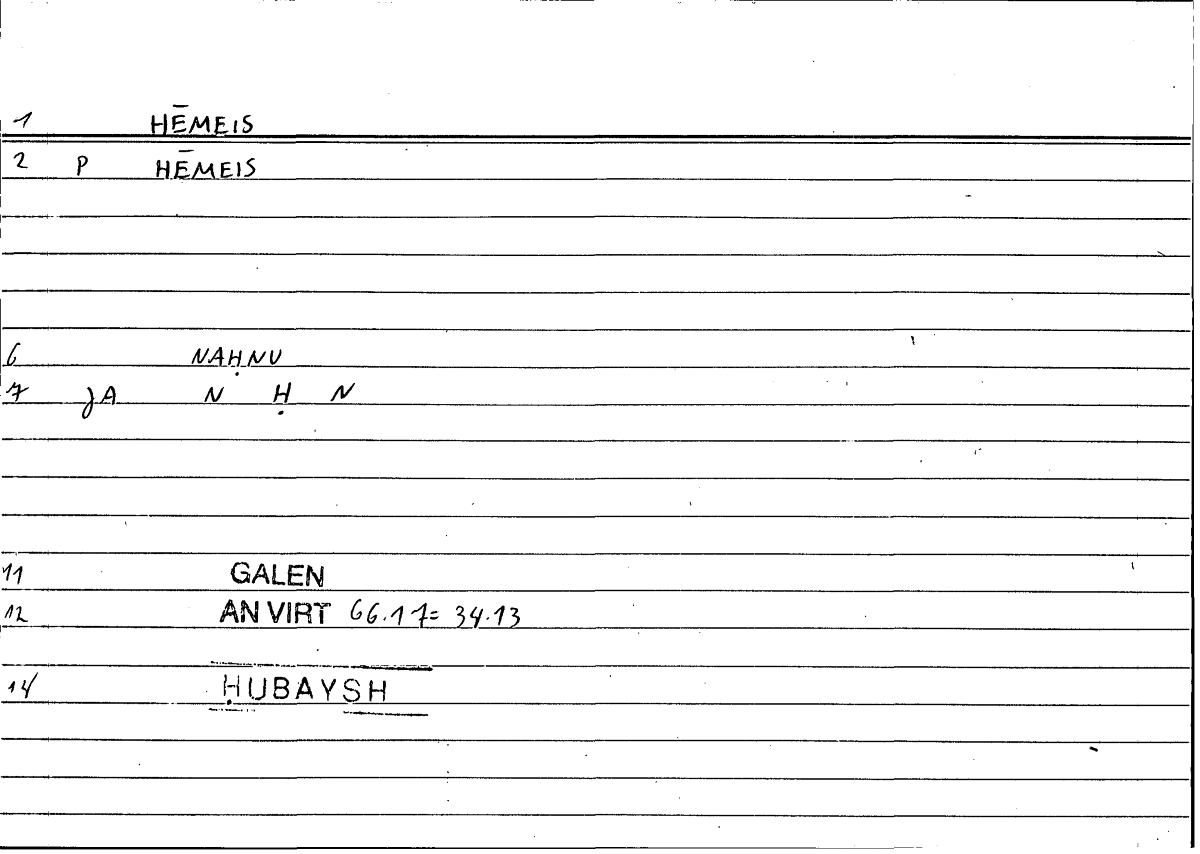 1 HĒMEIS
2 P HĒMEIS
6 NAḤNU
7 JA N Ḥ N
11 GALEN
12 AN VIRT 66.17= 34.13
14 ḤUBAYSH